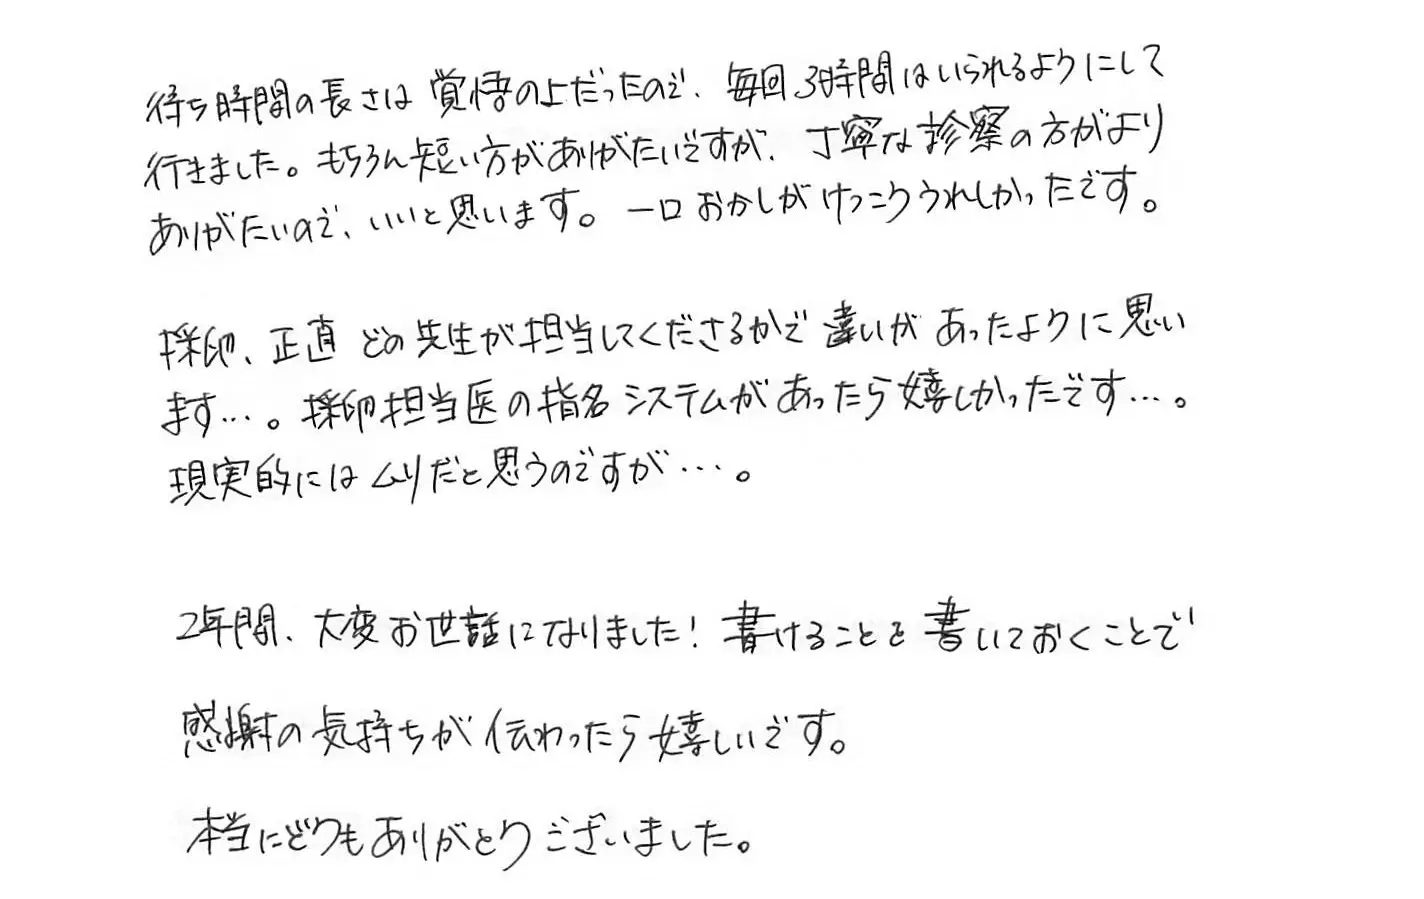 待ち時間の長さは覚悟の上だったので、毎回3時間はいられるようにして
行きました。もちろん短い方がありがたいですが、丁寧な診察の方がより
ありがたいので、いいと思います。一口おかしがけっこううれしかったです。
採卵、正直どの先生が担当してくださるかで違いがあったように思い
ます…。採卵担当医の指名システムがあったら嬉しかったです…。
現実的にはムリだと思うのですが…。
2年間、大変お世話になりました！書けることを書いておくことで
感謝の気持ちが伝わったら嬉しいです。
本当にどうもありがとうございました。